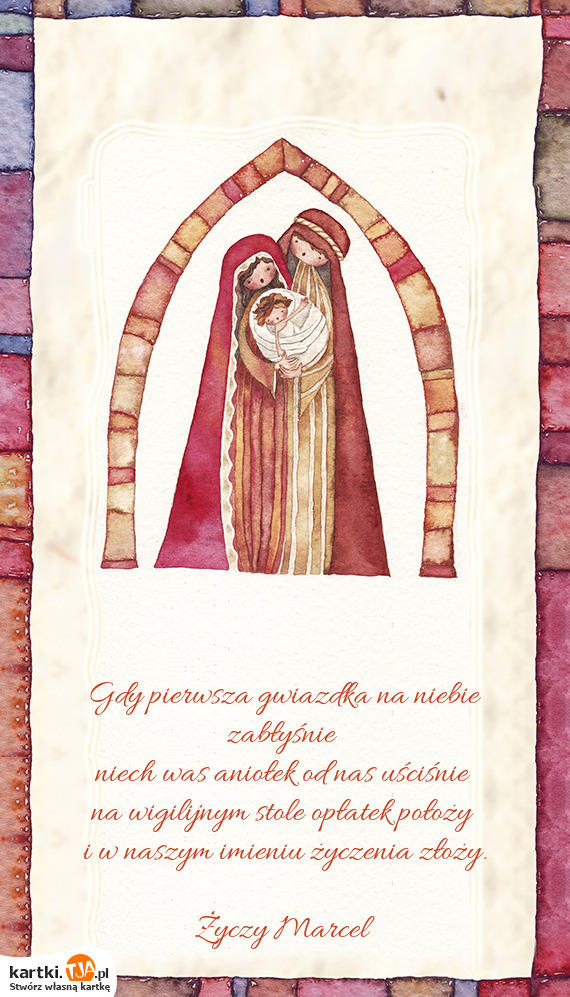 Gdy pierwsza gwiazdka na niebie
zabłyśnie
niech was aniołek od nas uściśnie
na wigilijnym stole opłatek położy
i w naszym imieniu życzenia złoży.
Życzy Marcel
kartki.TJA.pl
Stwórz własną kartkę